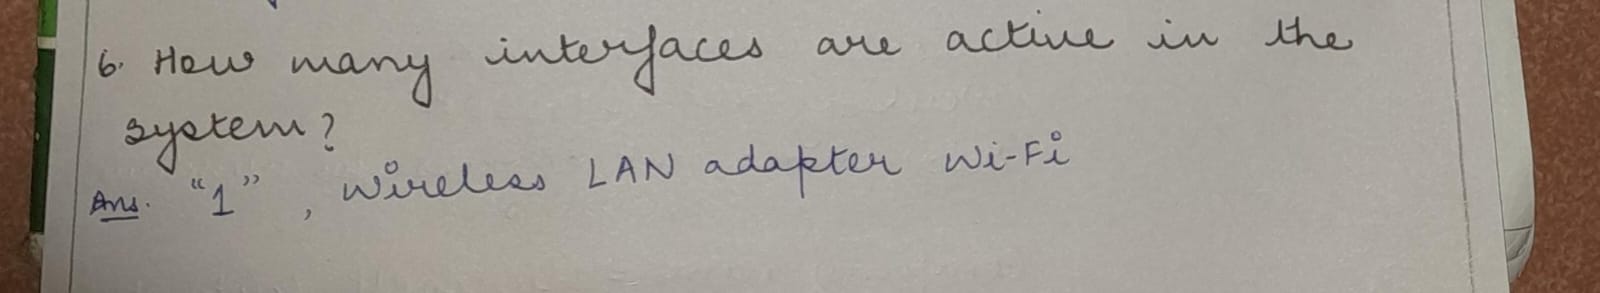 6. How many interfaces are active in the
system?
Ans. "1", Wireless LAN adapter Wi-Fi